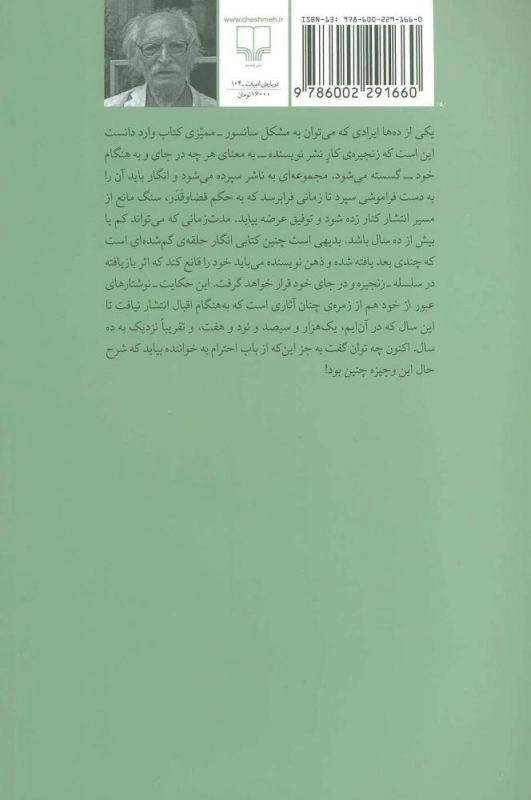 www.cheshmeh.ir
نشر چشمه
درباره‌ی ادبیات ــ ۱۰۴
۱۶۰۰۰ تومان
ISBN-13: 978-600-229-166-0
9 786002 291660
یکی از ده‌ها ایرادی که می‌توان به مشکل سانسور ــ ممیّزی کتاب وارد دانست
این است که زنجیره‌ی کارِ نشر نویسنده ــ به معنای هر چه در جای و به هنگام
خود ــ گسسته می‌شود. مجموعه‌ای به ناشر سپرده می‌شود و انگار باید آن را
به دست فراموشی سپرد تا زمانی فرابرسد که به حکم قضاوقَدَر، سنگ مانع از
مسیر انتشار کنار زده شود و توفیق عرضه بیابد. مدت‌زمانی که می‌تواند کم یا
بیش از ده سال باشد. بدیهی است چنین کتابی انگار حلقه‌ی گم‌شده‌ای است
که چندی بعد یافته شده و ذهن نویسنده می‌باید خود را قانع کند که اثر بازیافته
در سلسله ــ زنجیره و در جای خود قرار خواهد گرفت. این حکایت ــ نوشتارهای
عبور از خود هم از زمره‌ی چنان آثاری است که به‌هنگام اقبال انتشار نیافت تا
این سال که در آن‌ایم، یک‌هزار و سیصد و نود و هفت، و تقریباً نزدیک به ده
سال. اکنون چه توان گفت به جز این‌که از باب احترام به خواننده بیاید که شرح
حال این وجیزه چنین بود!